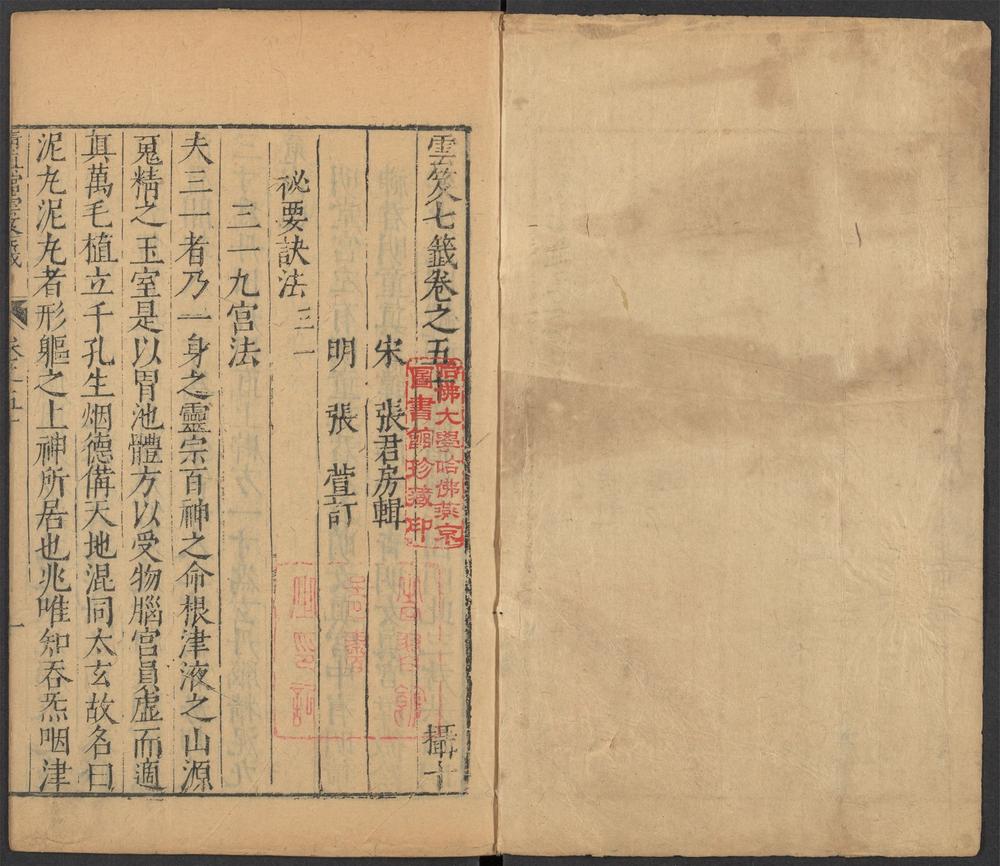 雲笈七籤卷之五十 攝十
宋 張君房輯
明 張 萱訂
祕要訣法 三一
三一九宮法
夫三一者乃一身之靈宗百神之命根津液之山源
䰟精之玉室是以胃池體方以受物腦宮員虛而適
真萬毛植立千孔生烟德備天地混同太玄故名曰
泥丸泥丸者形軀之上神所居也兆唯知吞炁咽津
哈佛大學哈佛燕京
圖書館珍藏印